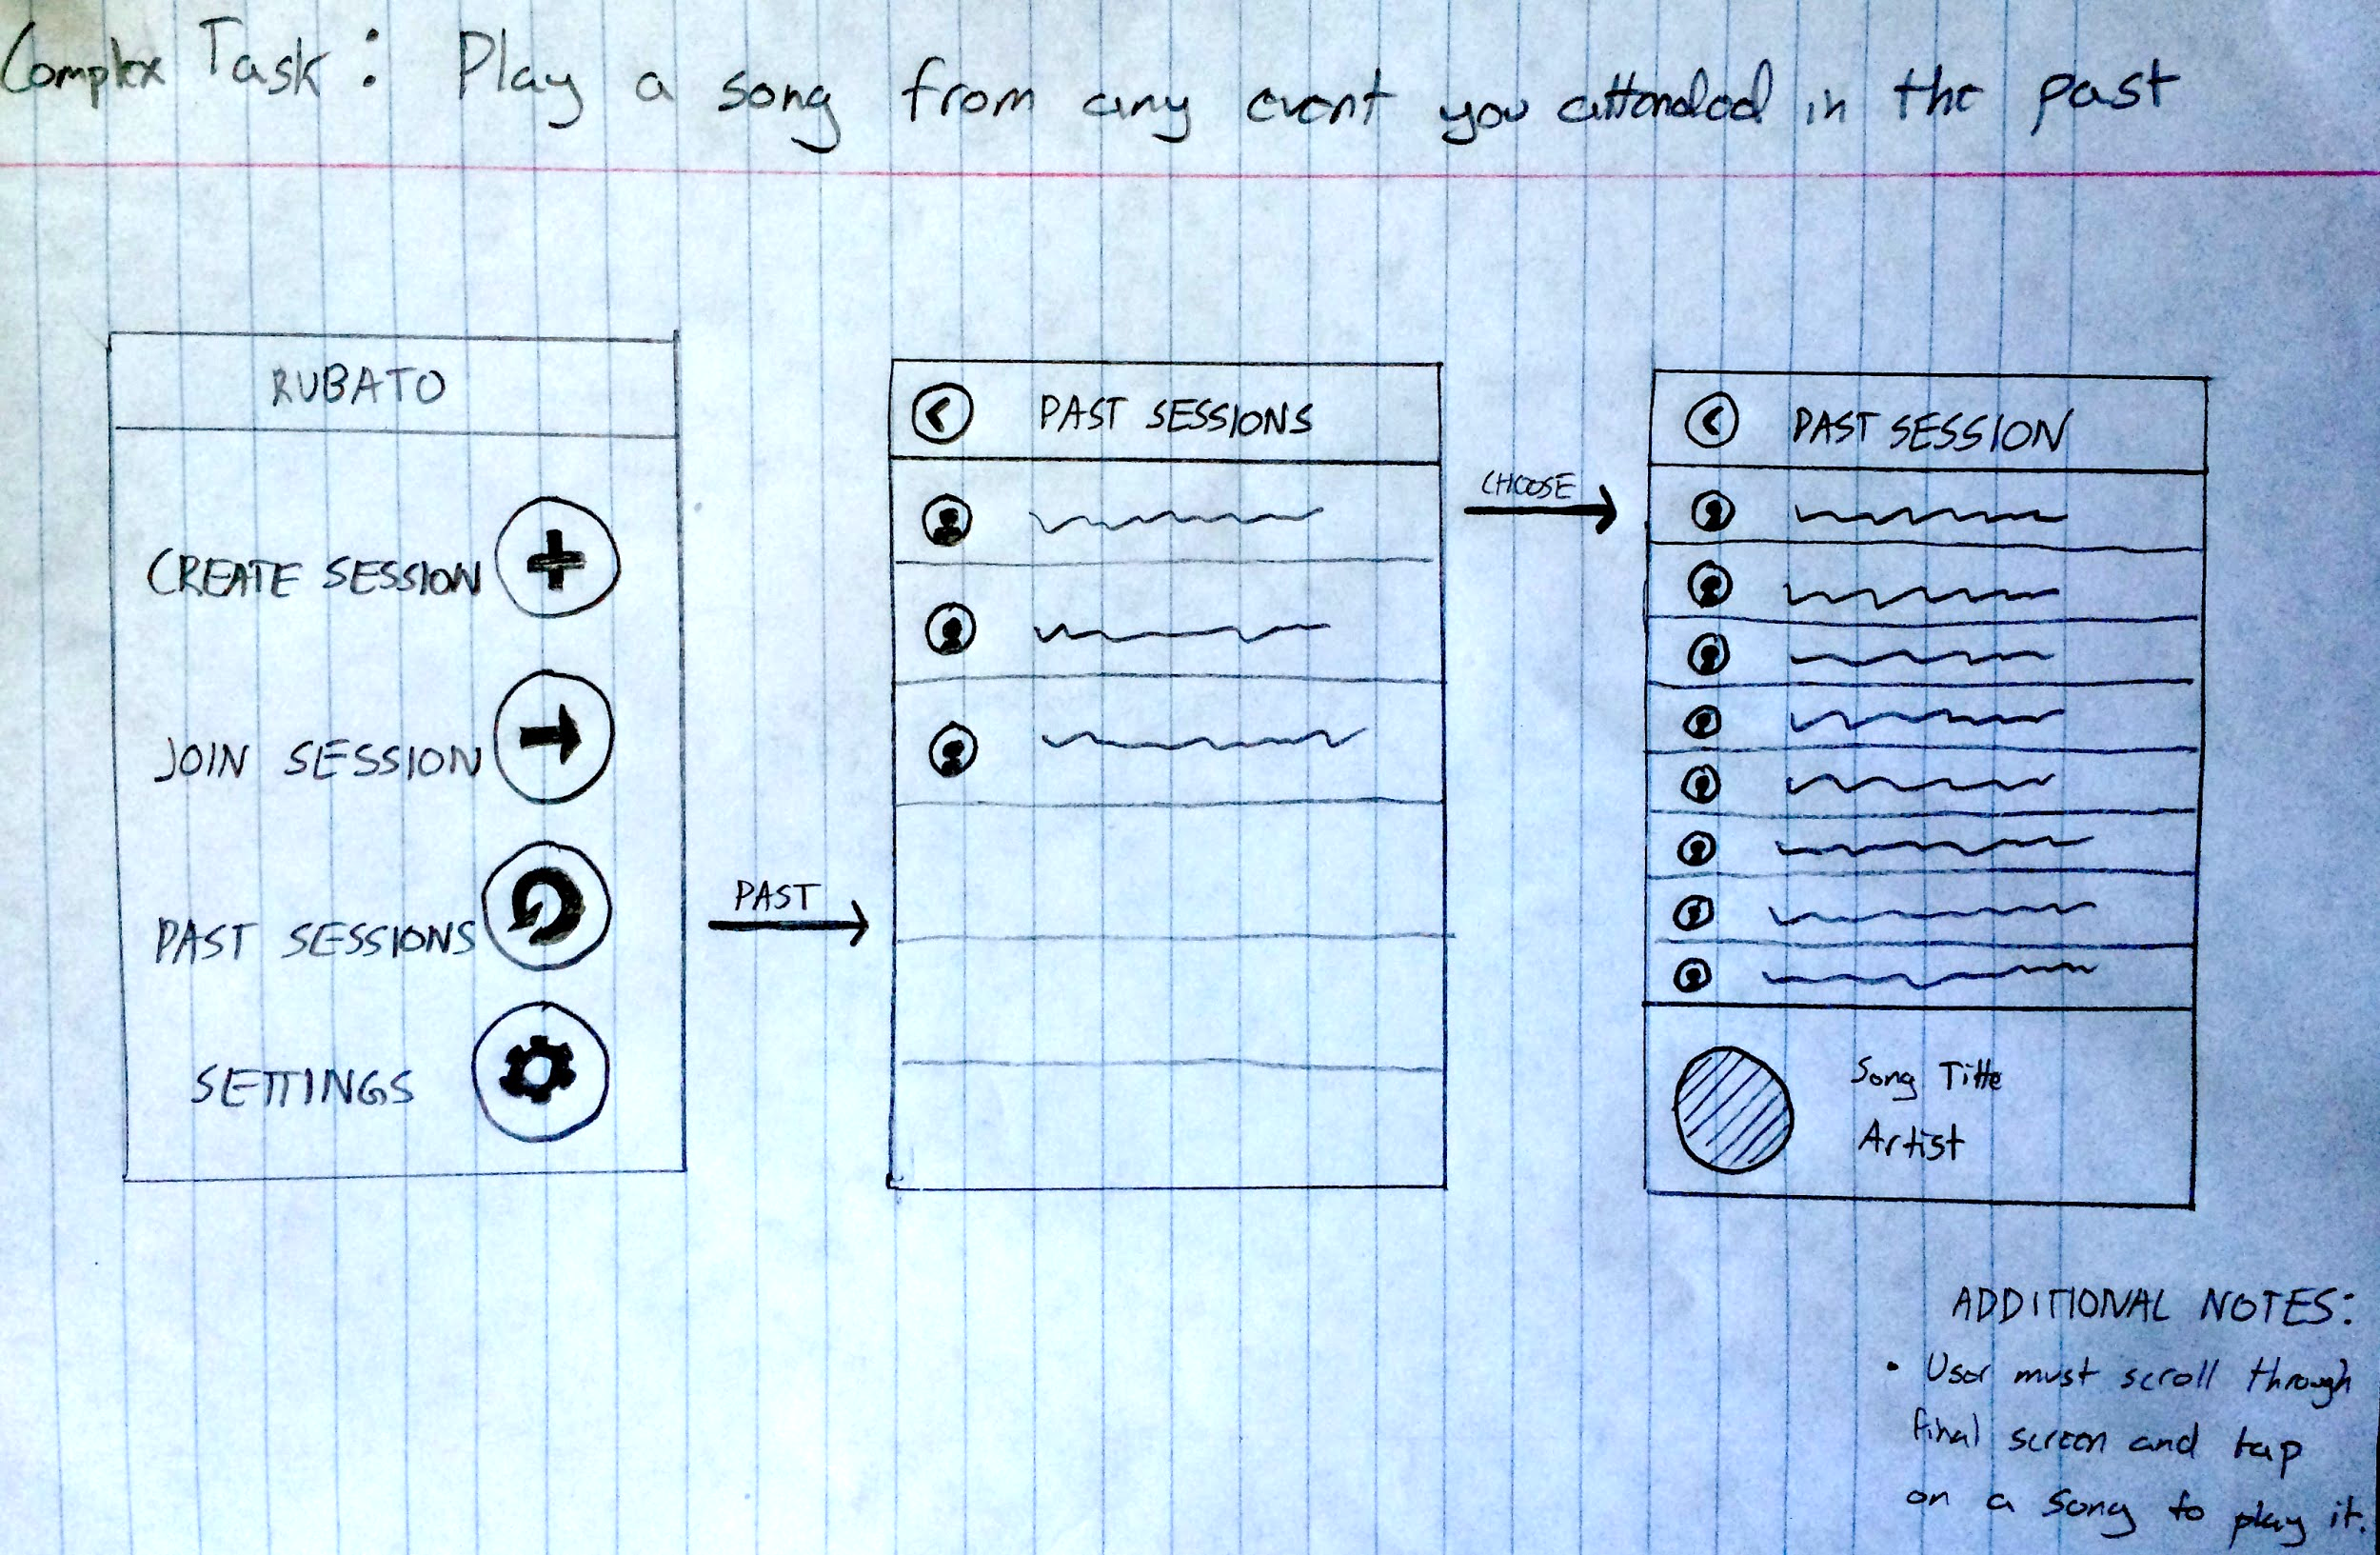 Complex Task: Play a song from any event you attended in the past
RUBATO
CREATE SESSION
JOIN SESSION
PAST SESSIONS
SETTINGS
PAST
PAST SESSIONS
CHOOSE
PAST SESSION
Song Title
Artist
ADDITIONAL NOTES:
• User must scroll through
final screen and tap
on a song to play it.